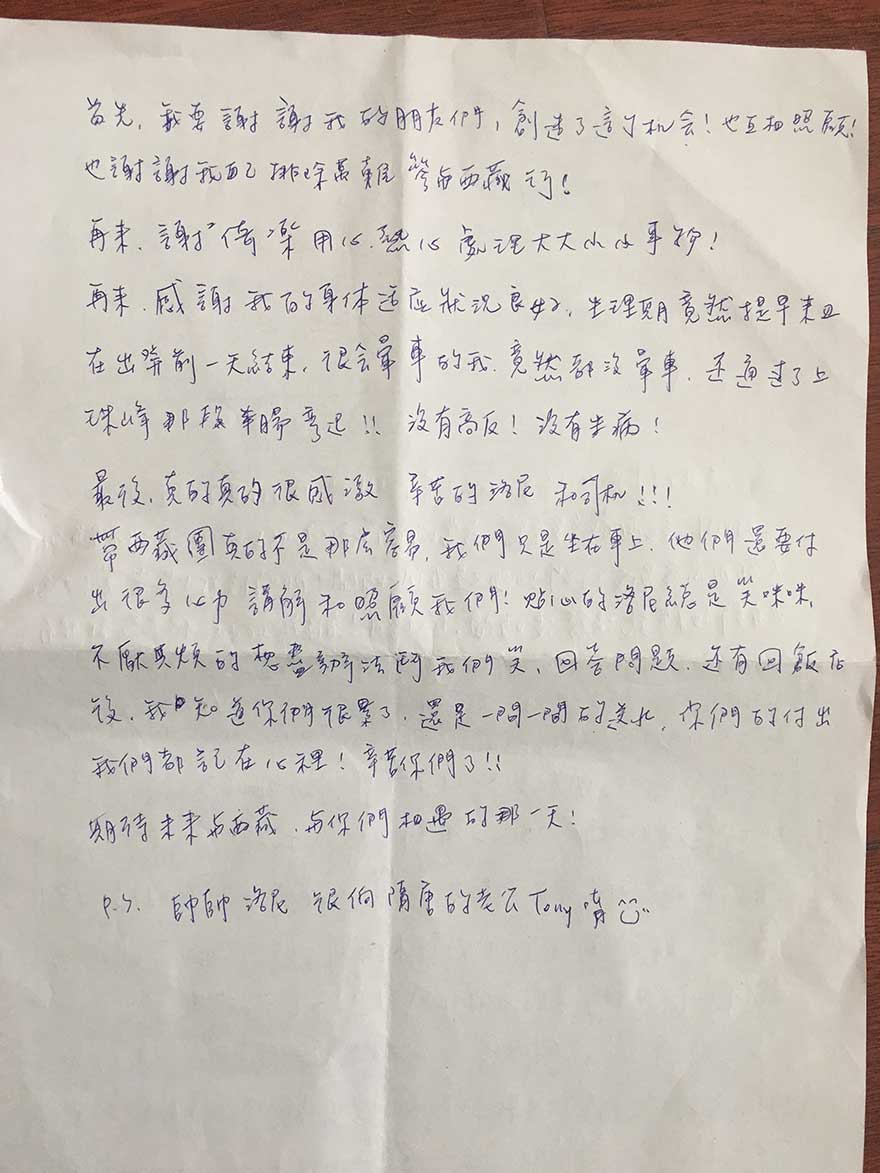 首先，我要謝謝我的朋友們，創造了這个机会！也互相照顧！
也謝謝我自己排除萬難 參與西藏行！
再來，謝謝倚樂用心.熱心處理大大小小事物！
再來，感謝我的身体适应狀況良好，生理期竟然提早來且
在出發前一天結束，很会暈車的我，竟然都沒暈車，还通过了上
珠峰那段華腸弯道!! 沒有高反！沒有生病！
最後，真的真的很感激 辛苦的洛尼和司机!!!
帶西藏團真的不是那麼容易，我們只是坐在車上，他們還要付
出很多心力講解和照顧我們！貼心的洛尼總是笑咪咪，
不厭其煩的想盡辦法鬥我們笑、回答問題，还有回飯店
後，我知道你們很累了，還是一間一間的送水，你們的付出
我們都記在心裡！辛苦你們了!!
期待未來与西藏、与你們相遇的那一天！
P.S. 帥帥洛尼 很像隋唐的老公Tony唷